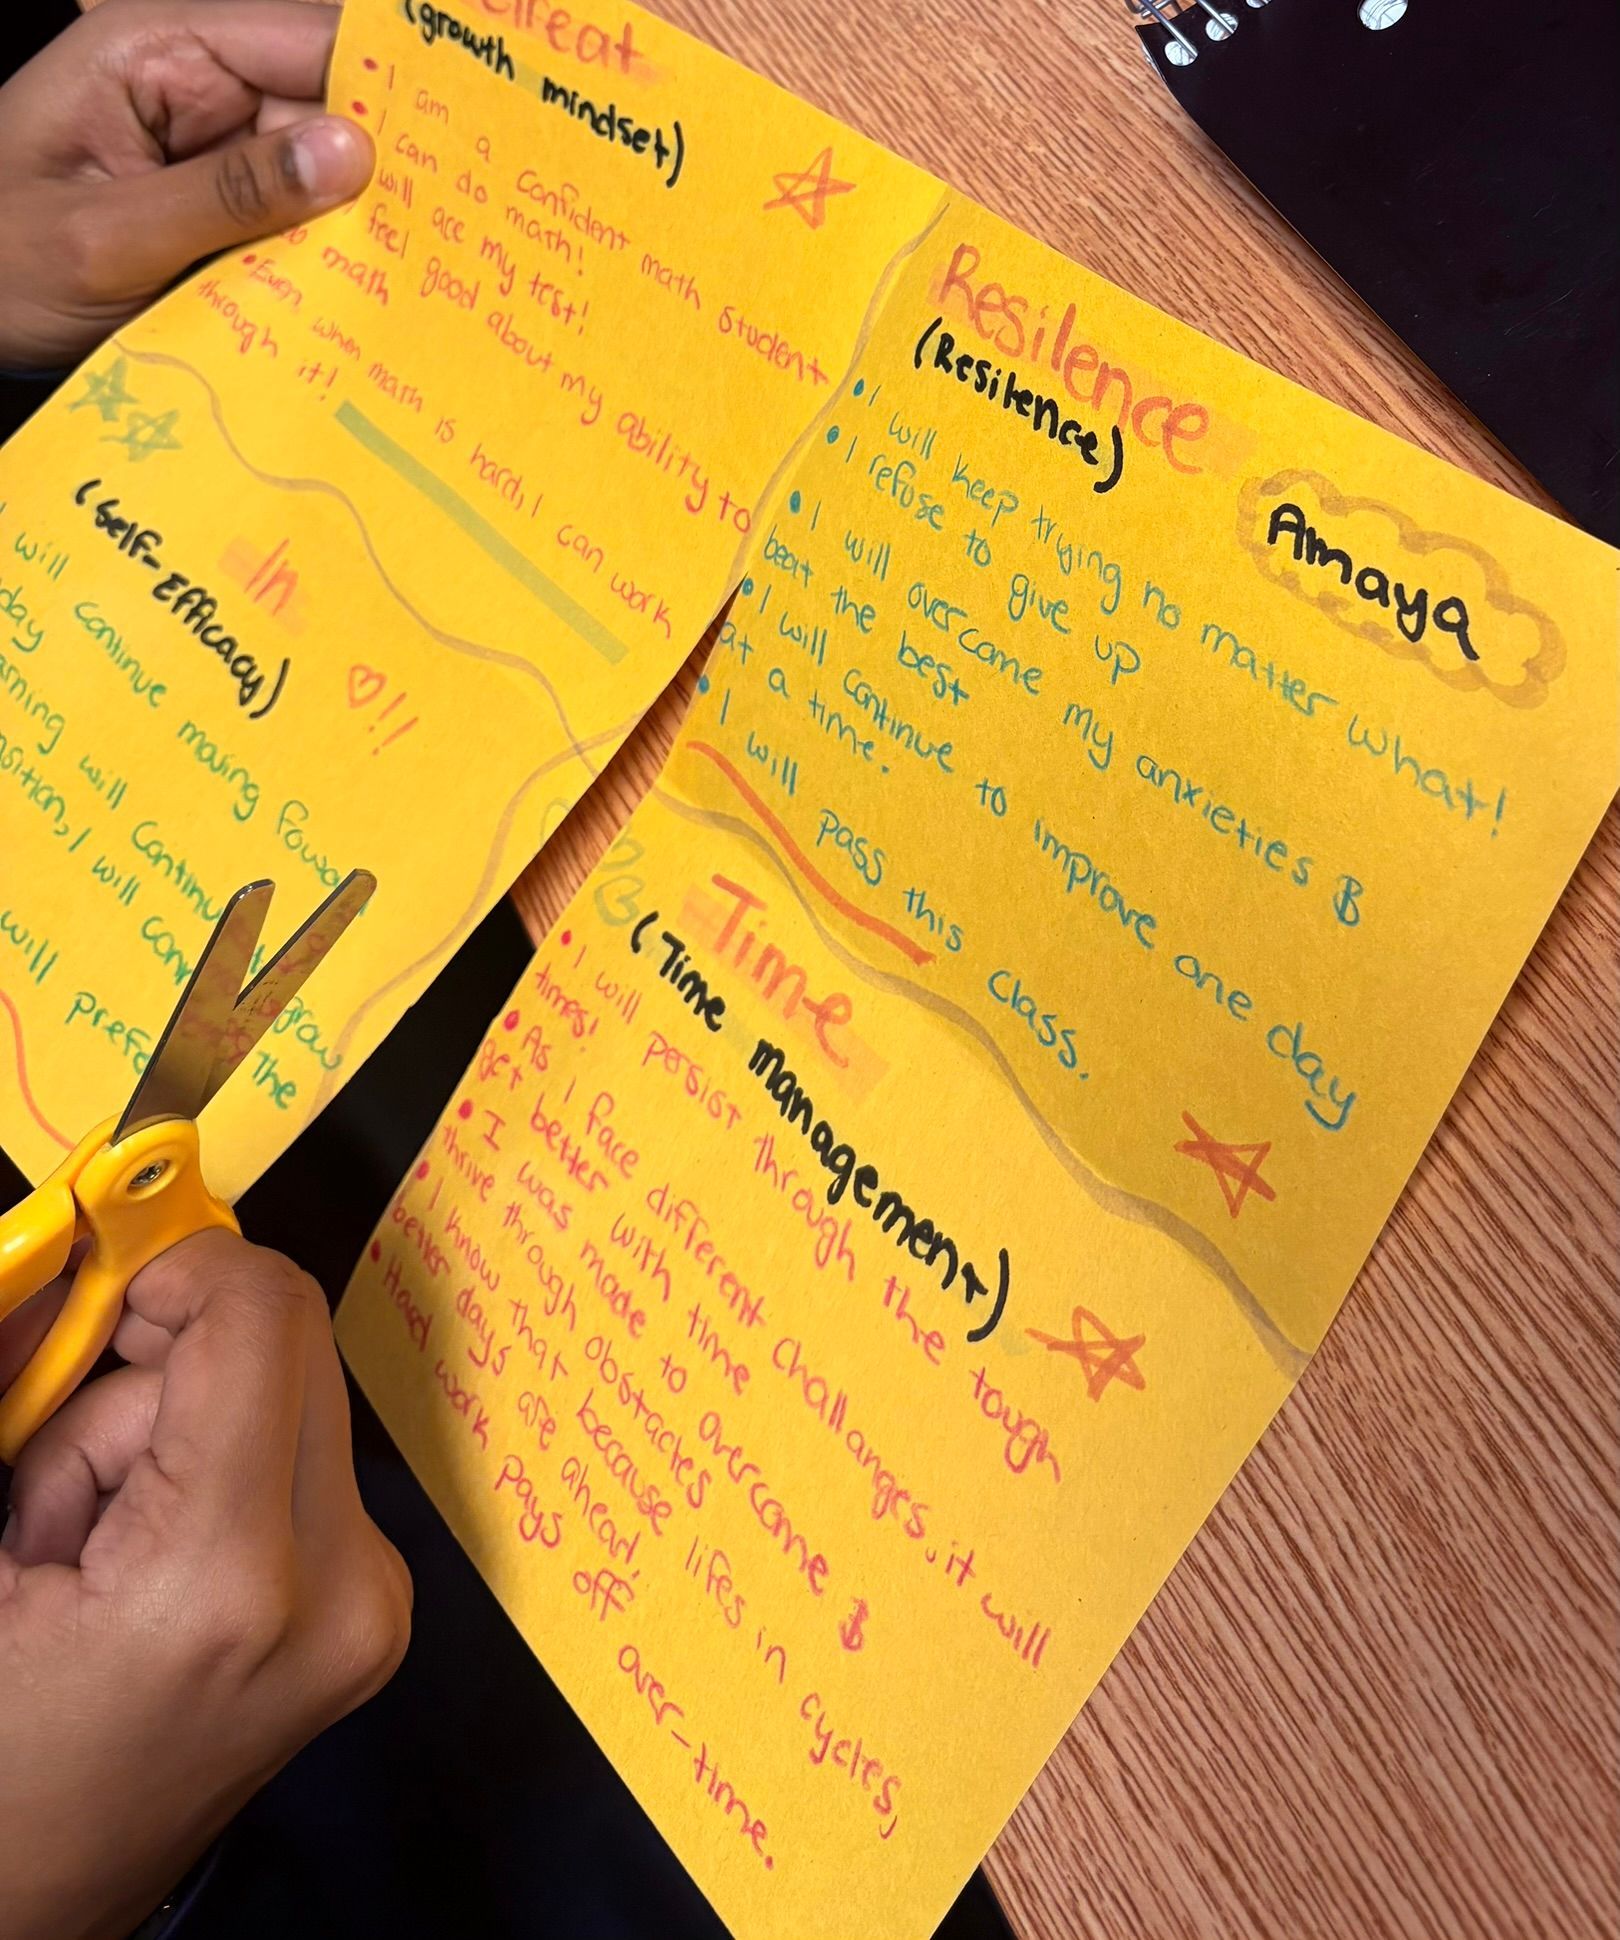 (growth mindset)
• I am a confident math student
• I can do math!
will ace my test!
feel good about my ability to
math
• Even when math is hard, I can work
through it!
Resilence
(Resilence)
Amaya
• I will keep trying no matter what!
• I refuse to give up
• I will overcome my anxieties &
beat the best
• I will continue to improve one day
at a time.
• I will pass this class.
In
(Self-Efficacy)
will continue moving
day
will
will
will
the
Time
(Time management)
• I will persist through the tough
times!
• As I face different challanges, it will
get better with time
• I was made to overcome &
thrive through obstacles
• I know that because lifes in cycles,
better days are ahead,
• Hard work pays off over-time.